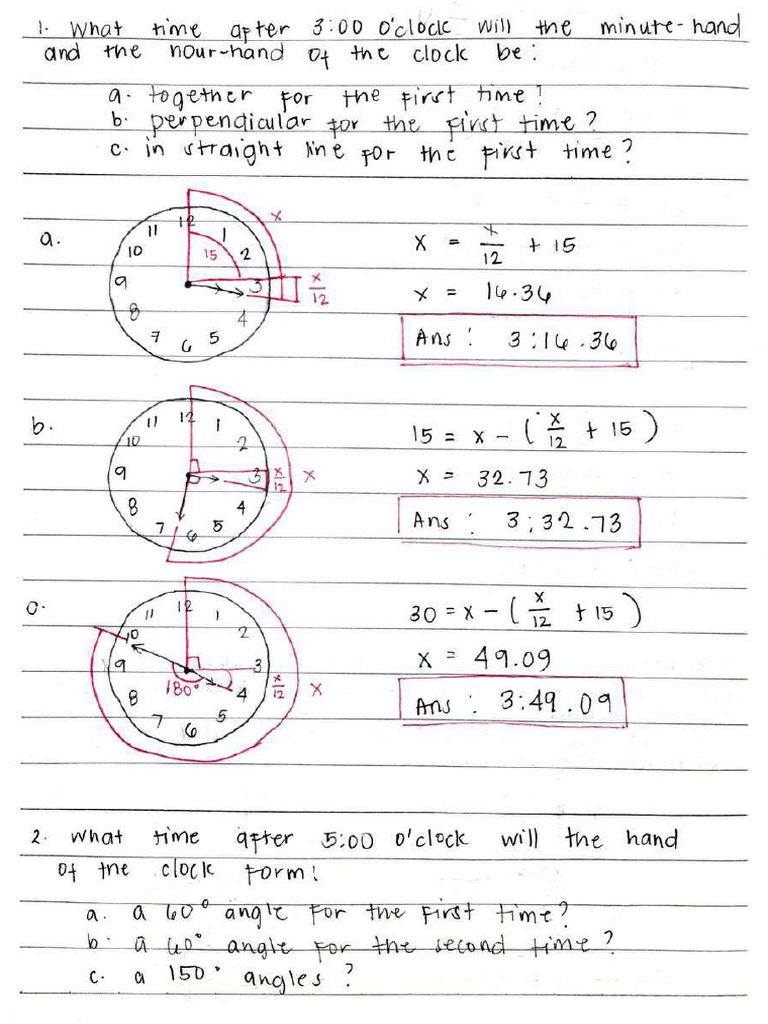 1. What time after 3:00 O'clock will the minute-hand
and the hour-hand of the clock be:
a. together for the first time?
b. perpendicular for the first time?
c. in straight line for the first time?
a.
12
11
1
10
15
2
9
3
8
4
7
5
6
x
x/12
x = x/12 + 15
x = 16.36
Ans : 3:16.36
b.
12
11
1
10
2
9
3
x/12
x
8
4
7
5
6
15 = x - (x/12 + 15)
x = 32.73
Ans : 3:32.73
c.
12
11
1
10
2
9
3
180°
x/12
x
8
4
7
5
6
30 = x - (x/12 + 15)
x = 49.09
Ans : 3:49.09
2. What time after 5:00 O'clock will the hand
of the clock form:
a. a 60° angle for the first time?
b. a 60° angle for the second time?
c. a 150° angles ?